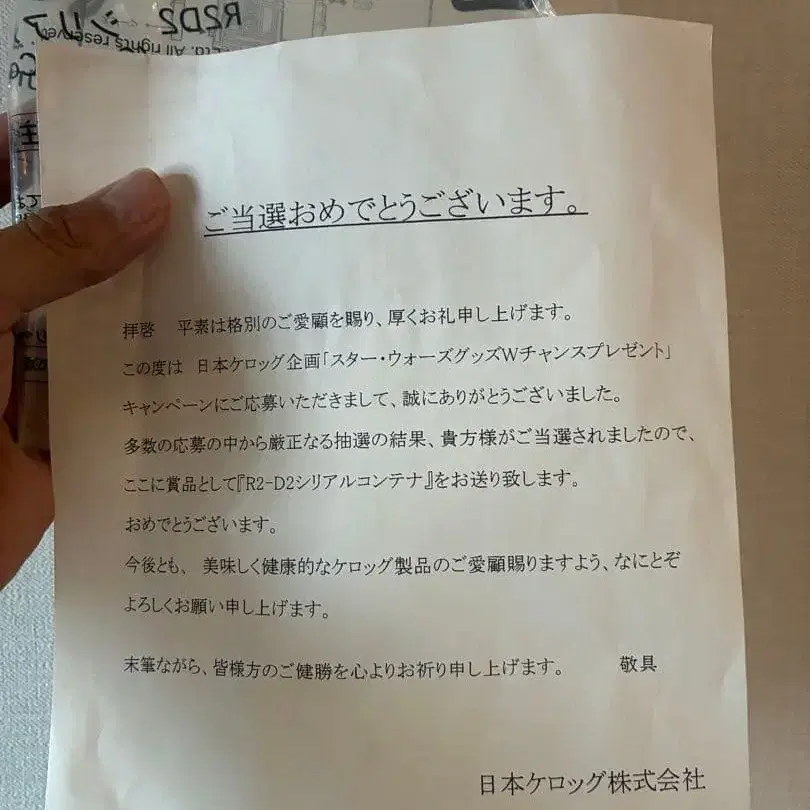 R2D2 シリア
Ltd. All rights reserved
ご当選おめでとうございます。
拝啓　平素は格別のご愛顧を賜り、厚くお礼申し上げます。
この度は　日本ケロッグ企画「スター・ウォーズグッズWチャンスプレゼント」
キャンペーンにご応募いただきまして、誠にありがとうございました。
多数の応募の中から厳正なる抽選の結果、貴方様がご当選されましたので、
ここに賞品として『R2-D2シリアルコンテナ』をお送り致します。
おめでとうございます。
今後とも、美味しく健康的なケロッグ製品のご愛顧賜りますよう、なにとぞ
よろしくお願い申し上げます。
末筆ながら、皆様方のご健勝を心よりお祈り申し上げます。　敬具
日本ケロッグ株式会社